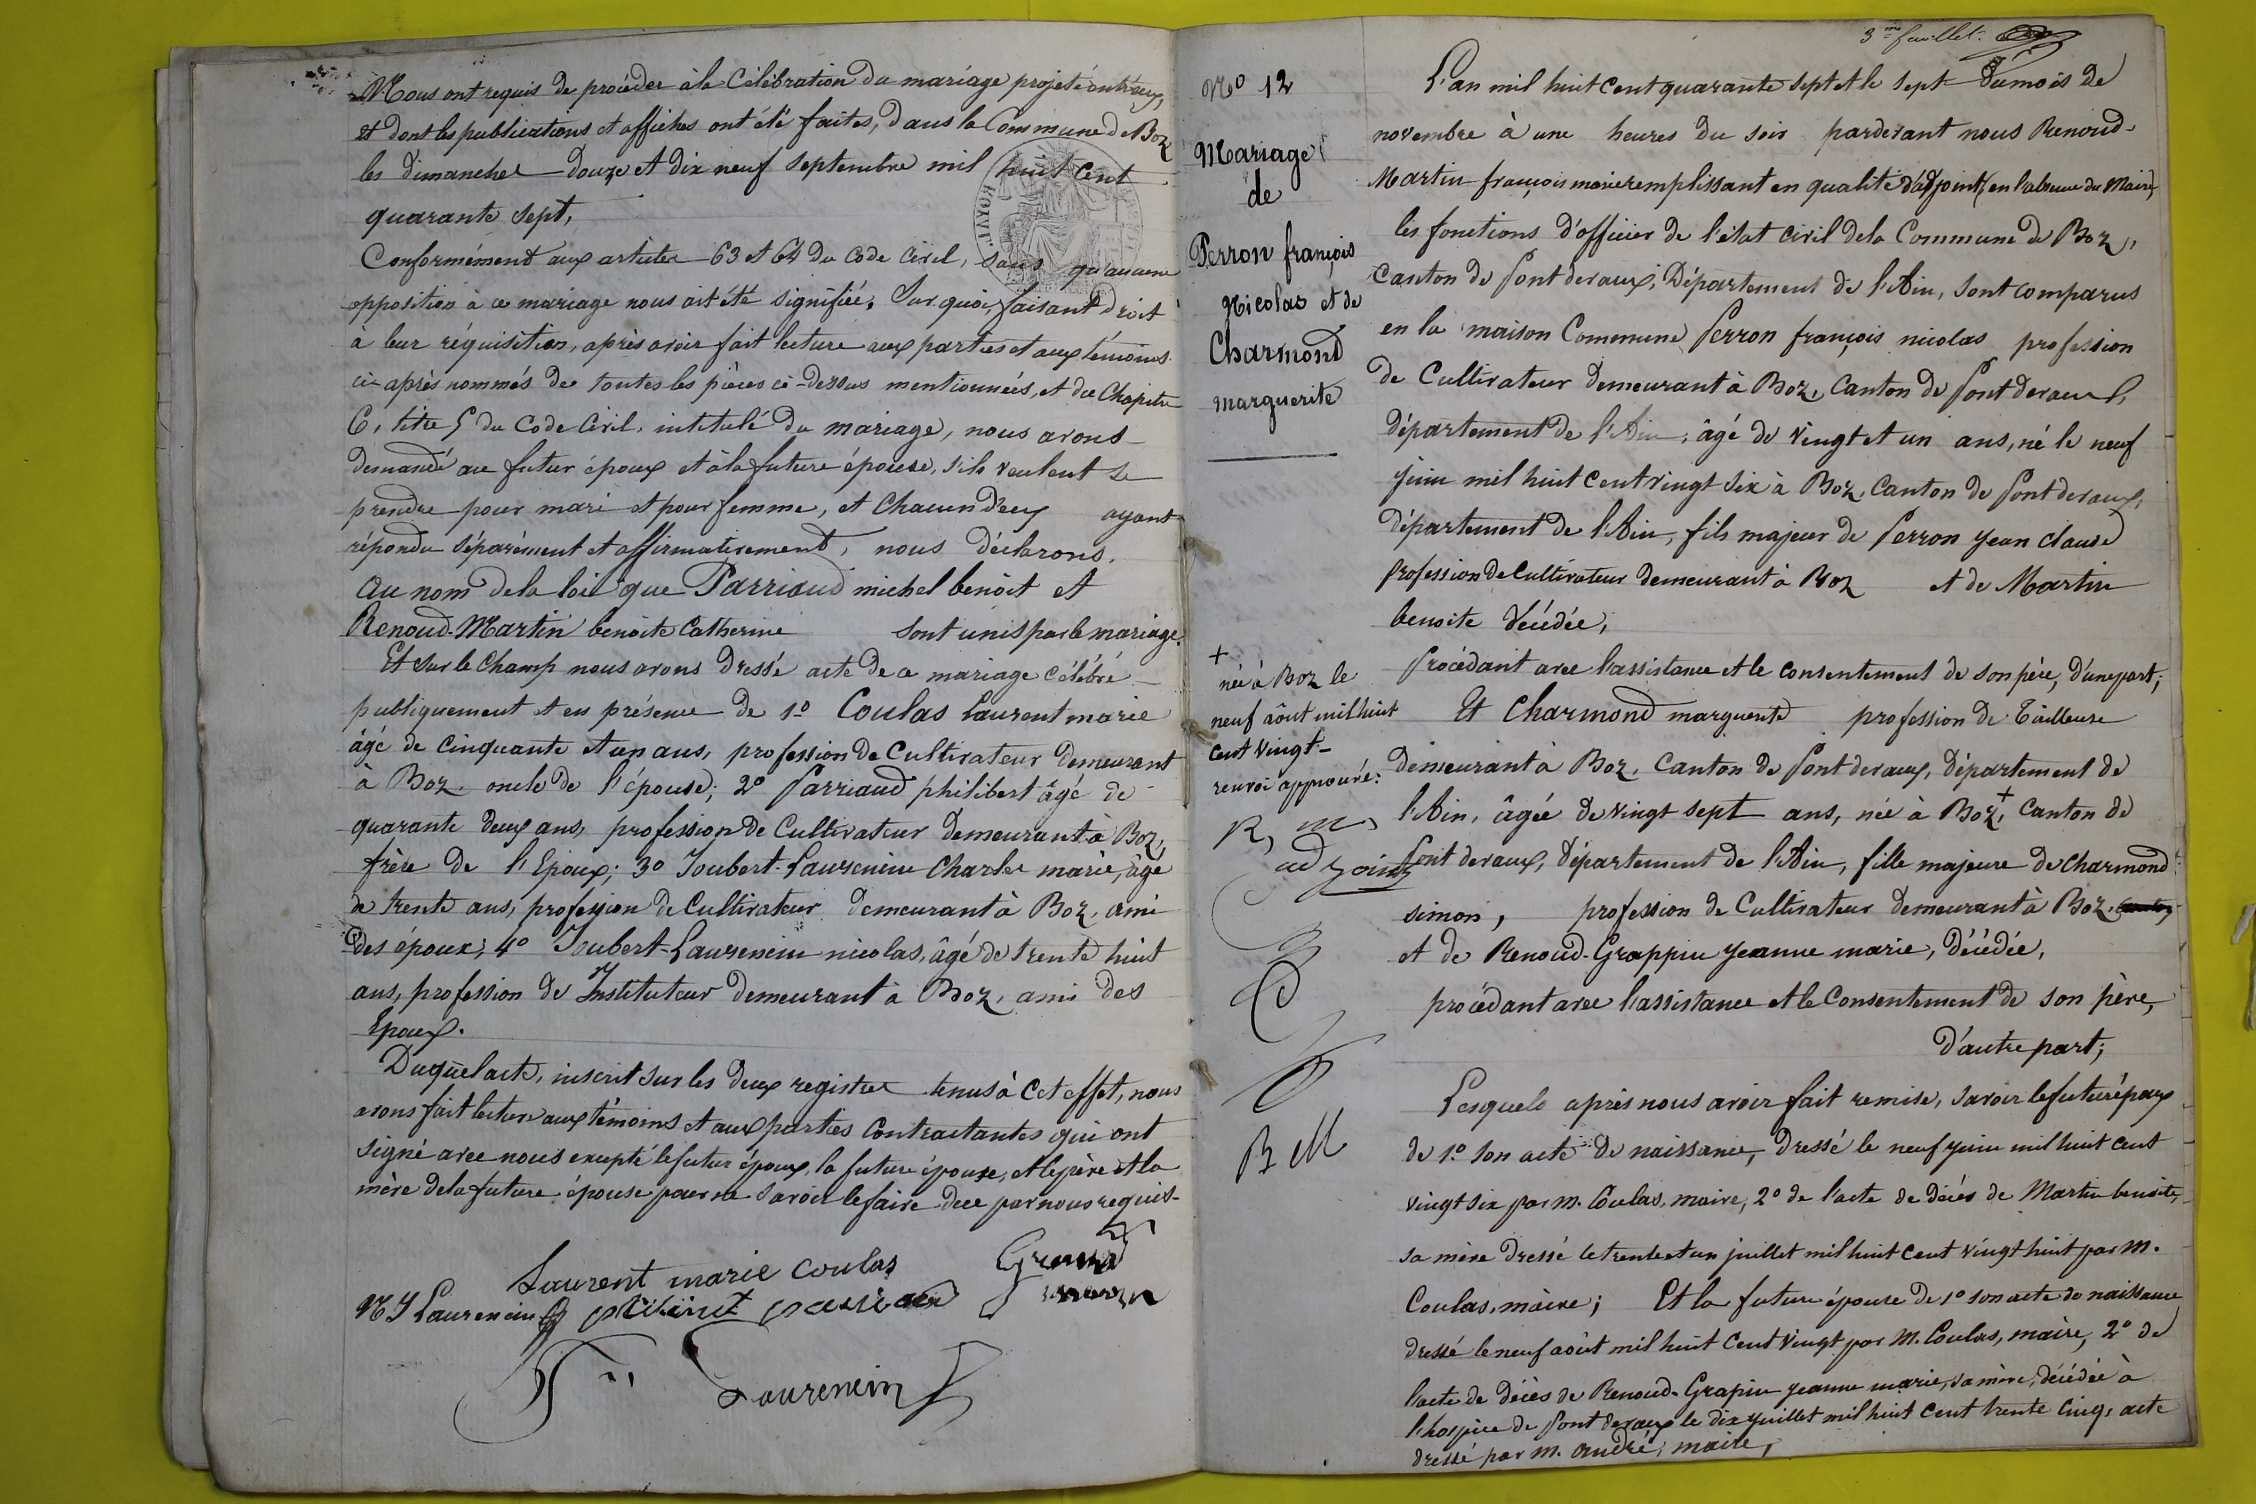 Nous ont requis de procéder à la Célébration du mariage projeté entr'eux,
et dont les publications et affiches ont été faites, dans la Commune de Boz
les dimanches douze et dix neuf septembre mil huit Cent
quarante sept,
Conformément aux articles 63 et 64 du Code Civil, sans qu'aucune
opposition à ce mariage nous ait été signifiée. Sur quoi, faisant droit
à leur réquisition, après avoir fait lecture aux parties et aux témoins
ci-après nommés de toutes les pièces ci-dessus mentionnées, et du Chapitre
6, titre 5 du Code Civil, intitulé du mariage, nous avons
demandé au futur époux et à la future épouse, s'ils veulent se
prendre pour mari et pour femme, et chacun d'eux ayant
répondu séparément et affirmativement, nous déclarons,
au nom de la loi que Parriaud michel benoit et
Renoud-Martin benoite Catherine sont unis par le mariage.
Et sur le Champ nous avons dressé acte de ce mariage célébré
publiquement et en présence de 1º Coulas laurent marie
âgé de Cinquante et un ans, profession de Cultivateur demeurant
à Boz, oncle de l'épouse; 2º Parriaud philibert âgé de
quarante deux ans, profession de Cultivateur demeurant à Boz,
frère de l'Epoux; 3º Joubert-Laurencin Charles marie, âgé
de trente ans, profession de Cultivateur demeurant à Boz, ami
des époux; 4º Joubert-Laurencin nicolas, âgé de trente huit
ans, profession de Instituteur demeurant à Boz, ami des
Epoux.
Duquel acte, inscrit sur les deux registres tenus à Cet effet, nous
avons fait lecture aux témoins et aux parties Contractantes qui ont
signé avec nous excepté le futur époux, la future épouse, et le père et la
mère de la future épouse pour ne savoir le faire de ce par nous requis
Laurent marie coulas
N J Laurencin
Laurencin
3me feuillet.
Nº 12
Mariage
de
Perron françois
Nicolas et de
Charmond
marguerite
L'an mil huit Cent quarante sept et le sept du mois de
novembre à une heures du soir pardevant nous Renoud-
Martin françois marie remplissant en qualité d'adjoint (en l'absence du Maire)
les fonctions d'officier de l'état Civil de la Commune de Boz,
Canton de Pont devaux, Département de l'Ain, sont comparus
en la maison Commune Perron françois nicolas profession
de Cultivateur demeurant à Boz, Canton de Pont devaux,
département de l'Ain, âgé de vingt et un ans, né le neuf
juin mil huit cent vingt six à Boz, Canton de Pont devaux,
département de l'Ain, fils majeur de Perron jean claude
profession de Cultivateur demeurant à Boz et de Martin
benoite décédée,
Procédant avec l'assistance et le consentement de son père, d'une part;
Et Charmond marguerite profession de Tailleuse
demeurant à Boz, Canton de Pont devaux, département de
l'Ain, âgée de vingt sept ans, née à Boz,+ Canton de
Pont devaux, département de l'Ain, fille majeure de Charmond
simon, profession de Cultivateur demeurant à Boz,
et de Renoud-Grappin jeanne marie, décédée,
procédant avec l'assistance et le Consentement de son père,
d'autre part;
Lesquels après nous avoir fait remise, savoir le futur époux
de 1º son acte de naissance, dressé le neuf juin mil huit cent
vingt six par m. Coulas, maire, 2º de l'acte de décès de Martin benoite,
sa mère dressé le trente et un juillet mil huit cent vingt huit par m.
Coulas, maire; Et la future épouse de 1º son acte de naissance
dressé le neuf août mil huit cent vingt par M. Coulas, maire, 2º de
l'acte de décès de Renoud-Grapin jeanne marie, sa mère, décédée à
l'hospice de Pont devaux le dix juillet mil huit cent trente cinq, acte
dressé par m. andré, maire,
+
née à Boz le
neuf août mil huit
cent vingt-
renvoi approuvé:
R, m,
adjoint
B M